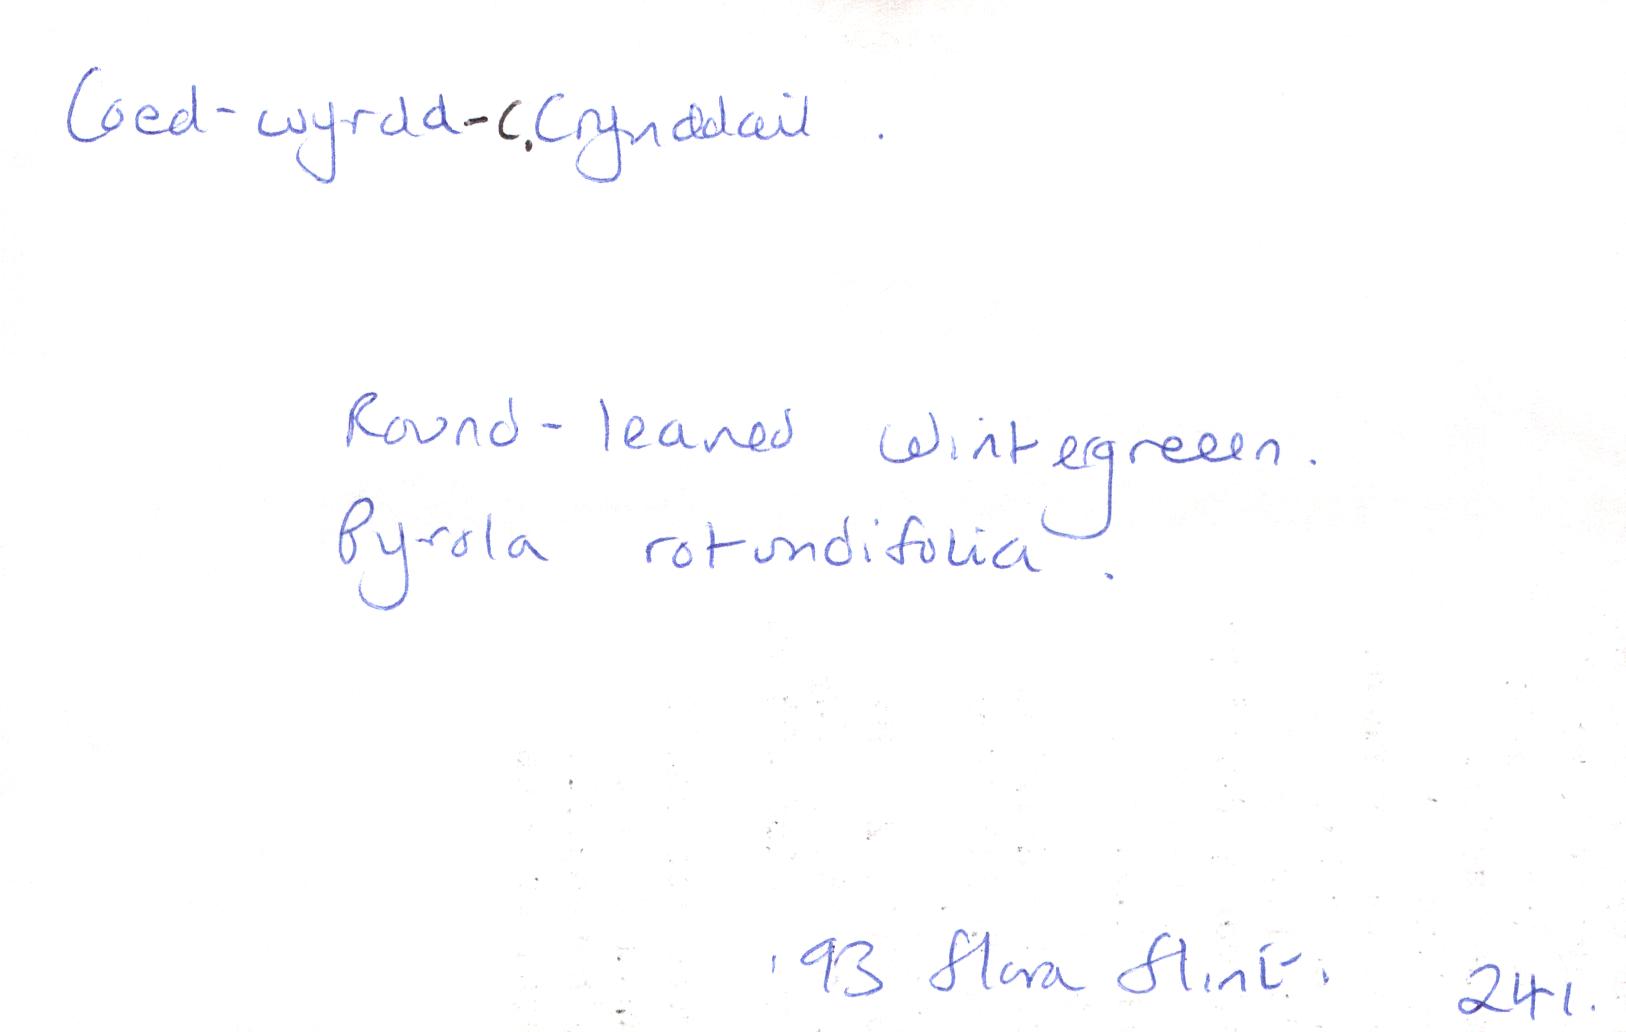 Coed-wyrdd-c. Crynddail.
Round-leaved wintergreeen.
Pyrola rotundifolia.
'93 Flora Flint. 241.